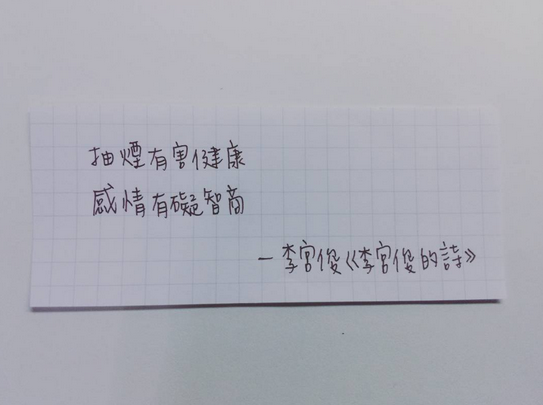 抽煙有害健康
感情有礙智商
—李宮俊《李宮俊的詩》